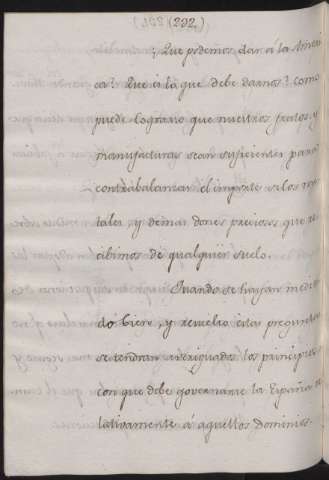 (292)
¿Que podemos dar á la Ameri
ca? Que es lo que debe darnos? como
puede lograrse que nuestros frutos, y
manufacturas sean suficientes para
contrabalanzar el importe de los me
tales, y demas dones preciosos que re
cibimos de aquel suelo.
Quando se hayan medita
do bien, y resuelto estas preguntas
se tendran averiguados los principios
con que debe governarse la España re
lativamente á aquellos dominios.